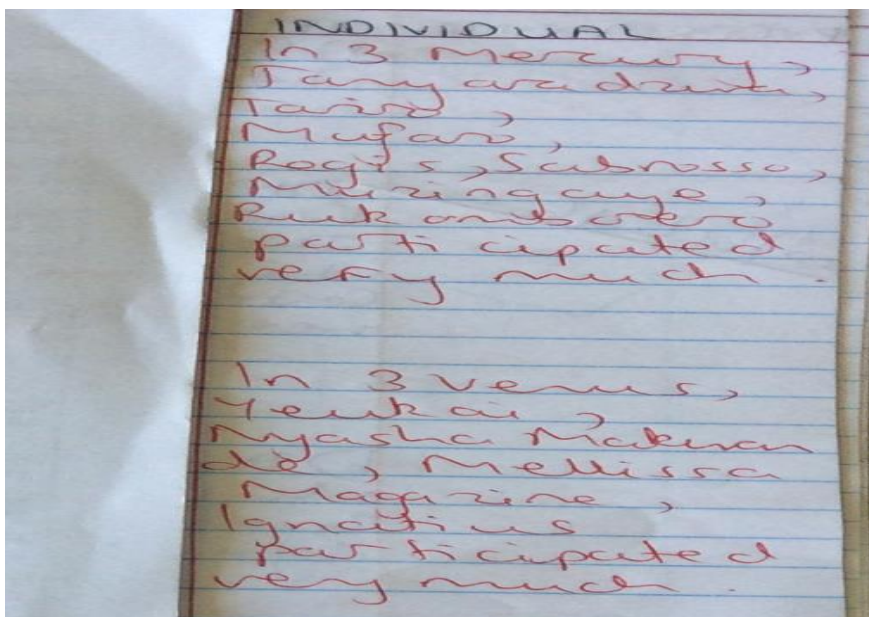 INDIVIDUAL
In 3 Mercury,
Tanyaradzwa,
Tariro,
Mufaro,
Regis, Sabrosso,
Muzingaye,
participated
very much.
In 3 Venus,
Yeukai,
Nyasha Makwan
do, Mellissa
Magazine,
Ignatius
participated
very much.